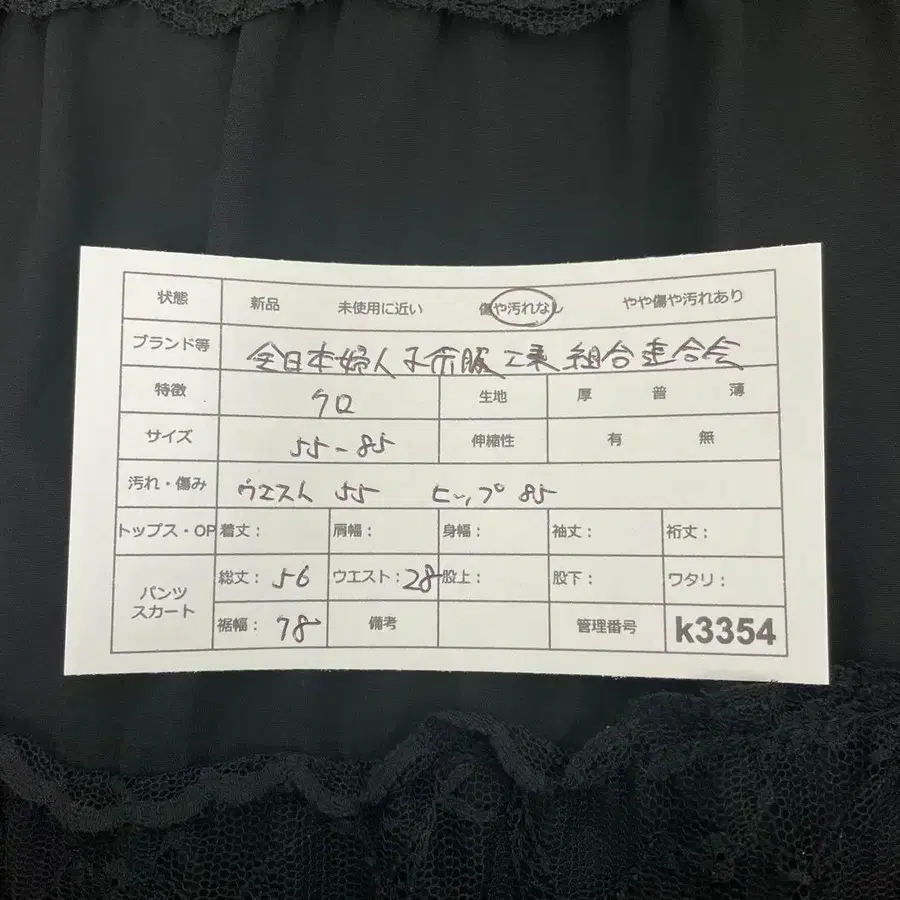 状態 新品 未使用に近い 傷や汚れなし やや傷や汚れあり
ブランド等 全日本婦人子供服工業組合連合会
特徴 クロ 生地 厚 普 薄
サイズ 55-85 伸縮性 有 無
汚れ・傷み ウエスト 55 ヒップ 85
トップス・OP 着丈: 肩幅: 身幅: 袖丈: 裄丈:
パンツ スカート 総丈: 56 ウエスト: 28 股上: 股下: ワタリ:
裾幅: 78 備考 管理番号 k3354